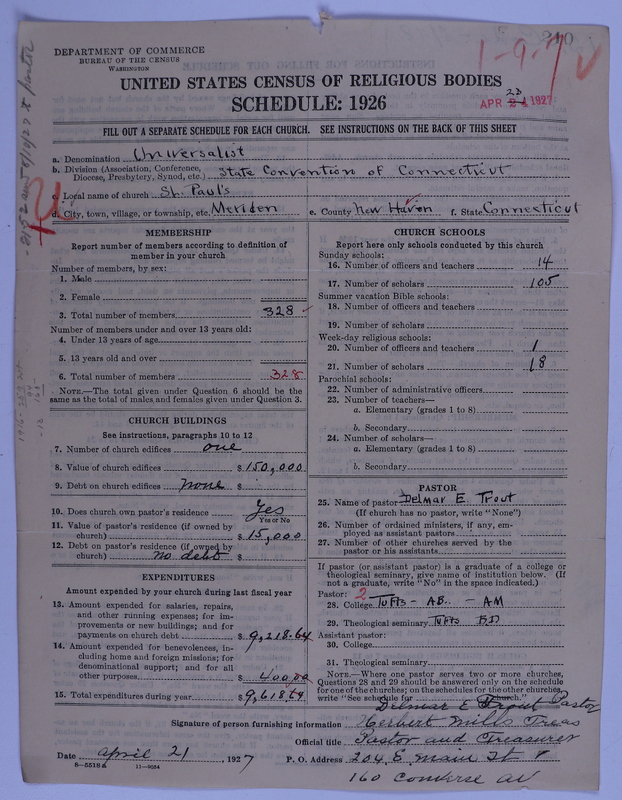 210
1-9-11 V
DEPARTMENT OF COMMERCE
BUREAU OF THE CENSUS
WASHINGTON
UNITED STATES CENSUS OF RELIGIOUS BODIES
SCHEDULE: 1926
23
APR 21 1927
FILL OUT A SEPARATE SCHEDULE FOR EACH CHURCH. SEE INSTRUCTIONS ON THE BACK OF THIS SHEET
a. Denomination Universalist
b. Division (Association, Conference, Diocese, Presbytery, Synod, etc.) State Convention of Connecticut
c. Local name of church St. Paul's
d. City, town, village, or township, etc. Meriden e. County New Haven f. State Connecticut
MEMBERSHIP
Report number of members according to definition of
member in your church
Number of members, by sex:
1. Male
2. Female
3. Total number of members 328
Number of members under and over 13 years old:
4. Under 13 years of age
5. 13 years old and over
6. Total number of members 328
NOTE.—The total given under Question 6 should be the
same as the total of males and females given under Question 3.
CHURCH BUILDINGS
See instructions, paragraphs 10 to 12
7. Number of church edifices one
8. Value of church edifices $150,000
9. Debt on church edifices none $
10. Does church own pastor's residence Yes
Yes or No
11. Value of pastor's residence (if owned by
church) $15,000
12. Debt on pastor's residence (if owned by
church) no debt $
EXPENDITURES
Amount expended by your church during last fiscal year
13. Amount expended for salaries, repairs,
and other running expenses; for im-
provements or new buildings; and for
payments on church debt $9,218.64
14. Amount expended for benevolences, in-
cluding home and foreign missions; for
denominational support; and for all
other purposes $400.00
15. Total expenditures during year $9,618.64
CHURCH SCHOOLS
Report here only schools conducted by this church
Sunday schools:
16. Number of officers and teachers 14
17. Number of scholars 105
Summer vacation Bible schools:
18. Number of officers and teachers
19. Number of scholars
Week-day religious schools:
20. Number of officers and teachers 1
21. Number of scholars 18
Parochial schools:
22. Number of administrative officers
23. Number of teachers—
a. Elementary (grades 1 to 8)
b. Secondary
24. Number of scholars—
a. Elementary (grades 1 to 8)
b. Secondary
PASTOR
25. Name of pastor Delmar E. Trout
(If church has no pastor, write "None")
26. Number of ordained ministers, if any, em-
ployed as assistant pastors
27. Number of other churches served by the
pastor or his assistants
If pastor (or assistant pastor) is a graduate of a college or
theological seminary, give name of institution below. (If
not a graduate, write "No" in the space indicated.)
Pastor: 2
28. College Tufts - AB. - AM
29. Theological seminary Tufts BD
Assistant pastor:
30. College
31. Theological seminary
NOTE.—Where one pastor serves two or more churches,
Questions 28 and 29 should be answered only on the schedule
for one of the churches; on the schedules for the other churches,
write "See schedule for church."
Delmar E Trout Pastor
Signature of person furnishing information Herbert Mills Treas
Official title Pastor and Treasurer
Date April 21, 1927 P. O. Address 204 E. Main St
8-5518a 11-9054
160 Converse av